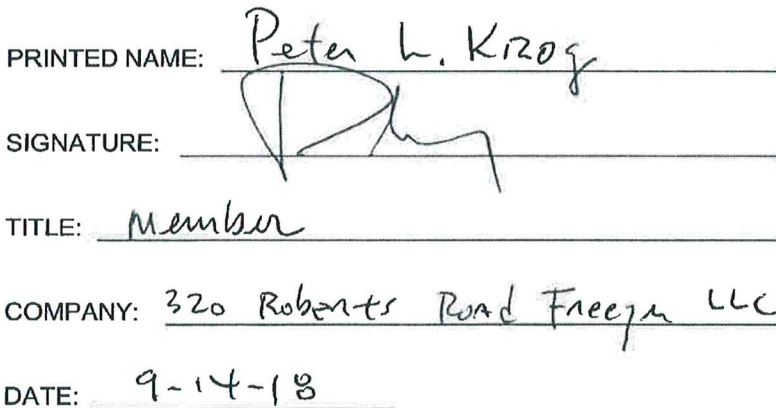 PRINTED NAME: Peter L. Krog
SIGNATURE:
TITLE: Member
COMPANY: 320 Roberts Road Freezer LLC
DATE: 9-14-18